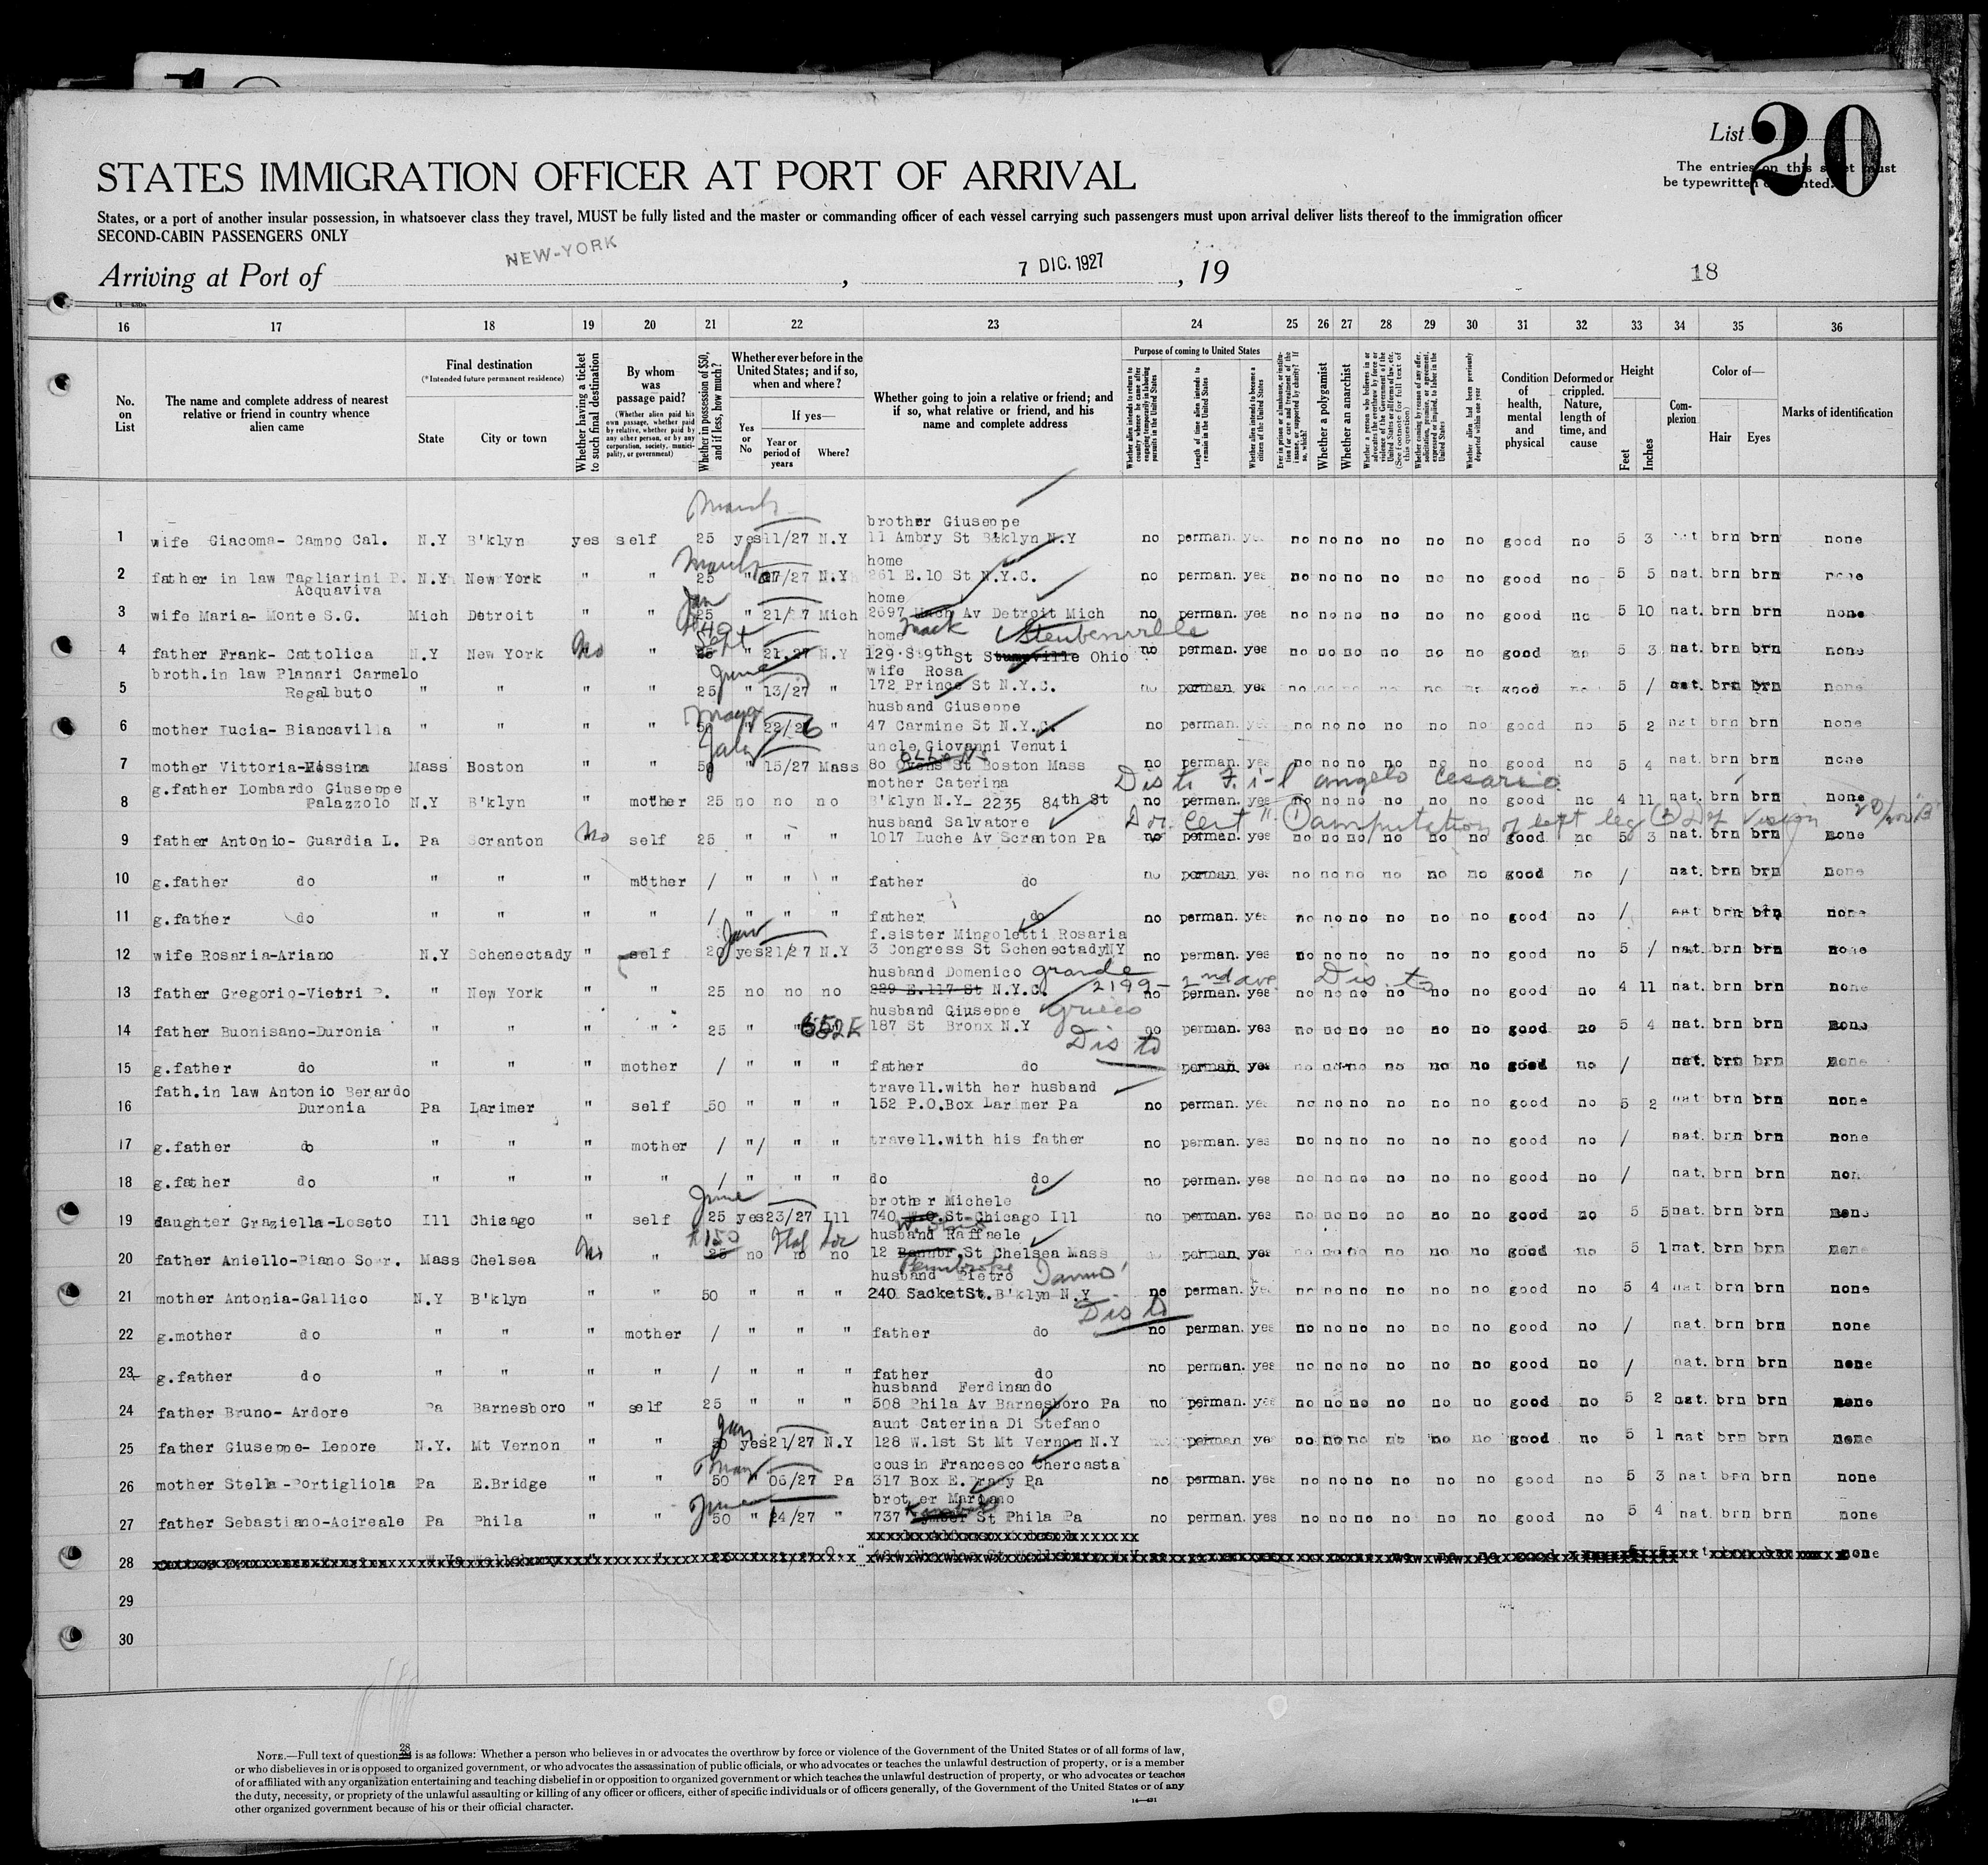 List 20
The entries on this sheet must
be typewritten or printed.
STATES IMMIGRATION OFFICER AT PORT OF ARRIVAL
States, or a port of another insular possession, in whatsoever class they travel, MUST be fully listed and the master or commanding officer of each vessel carrying such passengers must upon arrival deliver lists thereof to the immigration officer
SECOND-CABIN PASSENGERS ONLY
Arriving at Port of NEW-YORK , 7 DIC. 1927 , 19 18
16 17 18 19 20 21 22 23 24 25 26 27 28 29 30 31 32 33 34 35 36
No. on List
The name and complete address of nearest relative or friend in country whence alien came
Final destination
(*Intended future permanent residence)
State City or town
Whether having a ticket to such final destination
By whom was passage paid?
(Whether alien paid his own passage, whether paid by relative, whether paid by any other person, or by any corporation, society, municipality, or government)
Whether in possession of $50, and if less, how much?
Whether ever before in the United States; and if so, when and where?
Yes or No
If yes—
Year or period of years Where?
Whether going to join a relative or friend; and if so, what relative or friend, and his name and complete address
Purpose of coming to United States
Whether alien intends to return to country whence he came after engaging temporarily in laboring pursuits in the United States
Length of time alien intends to remain in the United States
Whether alien intends to become a citizen of the United States
Whether a polygamist
Whether an anarchist
Whether alien had been previously deported within one year
Condition of health, mental and physical
Deformed or crippled. Nature, length of time, and cause
Height
Feet Inches
Complexion
Color of—
Hair Eyes
Marks of identification
March
brother Giuseppe
1 wife Giacoma- Campo Cal. N.Y B'klyn yes self 25 yes 11/27 N.Y 11 Ambry St B'klyn N.Y no perman. no no no no no no good no 5 3 nat brn brn none
March home
2 father in law Tagliarini P. N.Y New York " " 25 " 27 N.Y 261 E.10 St N.Y.C. no perman. yes no no no no no no good no 5 5 nat. brn brn none
Acquaviva
Jan home
3 wife Maria- Monte S.G. Mich Detroit " " 25 " 21/27 Mich 2697 Mack Av Detroit Mich no perman. yes no no no no no no good no 5 10 nat. brn brn none
Sept home Steubenville
4 father Frank- Cattolica N.Y New York No " " 21.27 N.Y 129 S 9th St Ohio no perman. yes no no no no no no good no 5 3 nat. brn brn none
broth.in law Planari Carmelo June wife Rosa
5 Regalbuto " " " " 25 " 13/27 " 172 Prince St N.Y.C. no perman. yes no no no no no no good no 5 / nat. brn brn none
husband Giuseppe
6 mother Lucia- Biancavilla " " " " 50 " 22/26 " 47 Carmine St N.Y.C. no perman. no no no no no no good no 5 2 nat brn brn none
July uncle Giovanni Venuti
7 mother Vittoria-Messina Mass Boston " " 50 " 15/27 Mass 80 St Boston Mass no perman. yes no no no no no no good no 5 4 nat. brn brn none
g.father Lombardo Giuseppe mother Caterina Dis to F.i-l angelo Cesario
8 Palazzolo N.Y B'klyn " mother 25 no no no B'klyn N.Y- 2235 84th St no perman. yes no no no no no no good no 4 11 nat. brn brn none
husband Salvatore Dr. Cert amputation of left leg Def vision
9 father Antonio- Guardia L. Pa Scranton No self 25 " " " 1017 Luche Av Scranton Pa no perman. yes no no no no no no good no 5 3 nat. brn brn none
10 g.father do " " " mother / " " " father do no perman yes no no no no no no good no / nat. brn brn none
11 g.father do " " " " / " " " father do no perman. yes no no no no no no good no / nat brn brn none
Jan f.sister Mingoletti Rosaria
12 wife Rosaria-Ariano N.Y Schenectady " self 20 yes 21/27 N.Y 3 Congress St Schenectady NY no perman. yes no no no no no no good no 5 / nat. brn brn none
husband Domenico grande 2199- 2nd ave Dis. to
13 father Gregorio-Vietri P. " New York " " 25 no no no 229 E.117 St N.Y.C. no perman. yes no no no no no no good no 4 11 nat. brn brn none
husband Giuseppe Grieco
14 father Buonisano-Duronia " " " " 25 " " 652E 187 St Bronx N.Y no perman. yes no no no no no no good no 5 4 nat. brn brn none
Dis to
15 g.father do " " " mother / " " " father do perman. yes no no no no no no good no / nat. brn brn none
fath.in law Antonio Berardo travell.with her husband
16 Duronia Pa Larimer " self 50 " " " 152 P.O.Box Larimer Pa no perman. no no no no no no good no 5 2 nat brn brn none
17 g.father do " " " mother / " " " travell.with his father no perman. yes no no no no no no good no / nat. brn brn none
18 g.father do " " " " / " " " do do no perman. yes no no no no no no good no / nat. brn brn none
June brother Michele
19 daughter Graziella-Loseto Ill Chicago " self 25 yes 23/27 Ill 740 St-Chicago Ill no perman. yes no no no no no no good no 5 5 nat. brn brn none
$150 husband Raffaele
20 father Aniello-Piano Sorr. Mass Chelsea No " 25 no no no 12 Pembroke St Chelsea Mass perman. yes no no no no no no good no 5 1 nat. brn brn none
husband Pietro
21 mother Antonia-Gallico N.Y B'klyn " " 50 " " " 240 Sacket St. B'klyn N.Y no perman. no no no no no no good no 5 4 nat brn brn none
Dis to
22 g.mother do " " " mother / " " " father do no perman. yes no no no no no no good no / nat. brn brn none
23 g.father do " " " " / " " " father do no perman. yes no no no no no no good no / nat. brn brn none
husband Ferdinando
24 father Bruno- Ardore Pa Barnesboro " self 25 " " " 508 Phila Av Barnesboro Pa no perman. yes no no no no no no good no 5 2 nat. brn brn none
Jan aunt Caterina Di Stefano
25 father Giuseppe- Lepore N.Y. Mt Vernon " " 50 yes 21/27 N.Y 128 W.1st St Mt Vernon N.Y perman yes no no no no no no good no 5 1 nat brn brn none
May cousin Francesco Chercasta
26 mother Stella -Portigliola Pa E.Bridge " " 50 " 06/27 Pa 317 Box E. Pa no perman. yes no no no no no no good no 5 3 nat brn brn none
June brother Mariano
27 father Sebastiano-Acireale Pa Phila " " 50 " 24/27 " 737 St Phila Pa no perman. yes no no no no no no good no 5 4 nat brn brn none
28 none
29
30
28
NOTE.—Full text of question is as follows: Whether a person who believes in or advocates the overthrow by force or violence of the Government of the United States or of all forms of law,
or who disbelieves in or is opposed to organized government, or who advocates the assassination of public officials, or who advocates or teaches the unlawful destruction of property, or is a member
of or affiliated with any organization entertaining and teaching disbelief in or opposition to organized government or which teaches the unlawful destruction of property, or who advocates or teaches
the duty, necessity, or propriety of the unlawful assaulting or killing of any officer or officers, either of specific individuals or of officers generally, of the Government of the United States or of any
other organized government because of his or their official character.
14—431